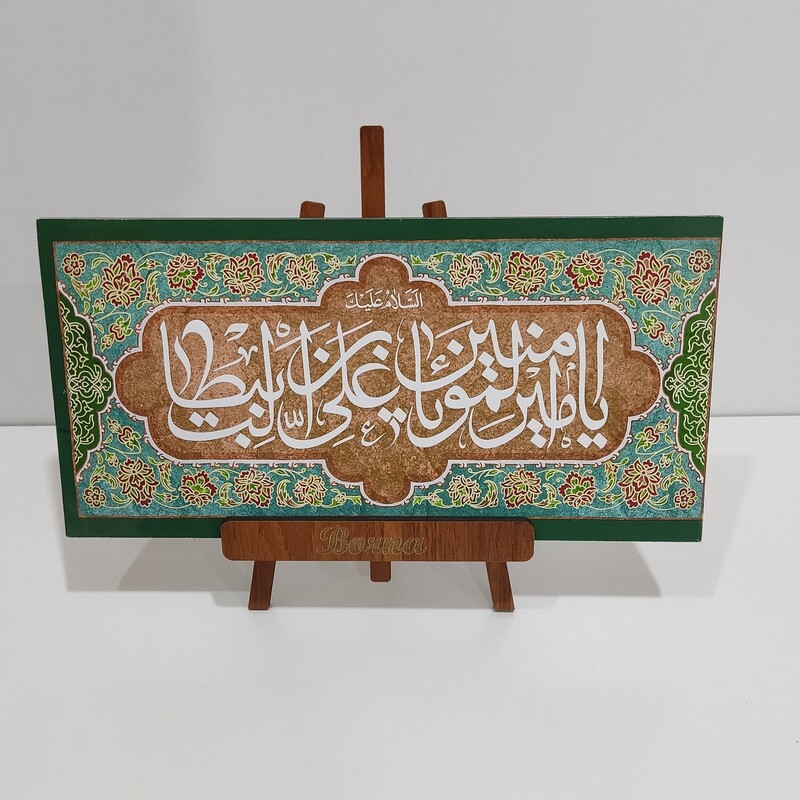 السَّلامُ عَلَیْكَ
یا امیرالمؤمنین یا علی بن ابیطالب
Borna